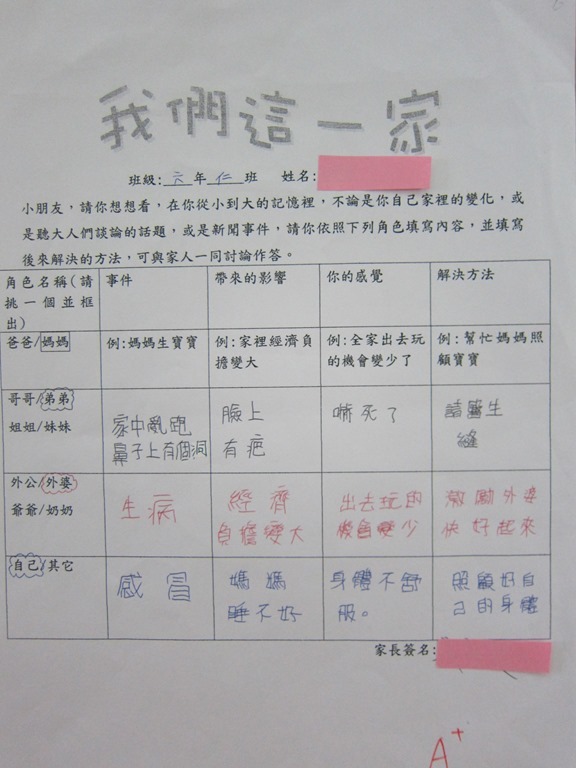 我們這一家
班級:六年仁班 姓名:
小朋友，請你想想看，在你從小到大的記憶裡，不論是你自己家裡的變化，或
是聽大人們談論的話題，或是新聞事件，請你依照下列角色填寫內容，並填寫
後來解決的方法，可與家人一同討論作答。
角色名稱(請
挑一個並框
出)
事件
帶來的影響
你的感覺
解決方法
爸爸/媽媽
例:媽媽生寶寶
例:家裡經濟負
擔變大
例:全家出去玩
的機會變少了
例:幫忙媽媽照
顧寶寶
哥哥/弟弟
姐姐/妹妹
家中亂跑
鼻子上有個洞
臉上
有疤
嚇死了
請醫生
縫
外公/外婆
爺爺/奶奶
生病
經濟
負擔變大
出去玩的
機會變少
激勵外婆
快好起來
自己/其它
感冒
媽媽
睡不好
身體不舒
服。
照顧好自
己的身體
家長簽名:
A+